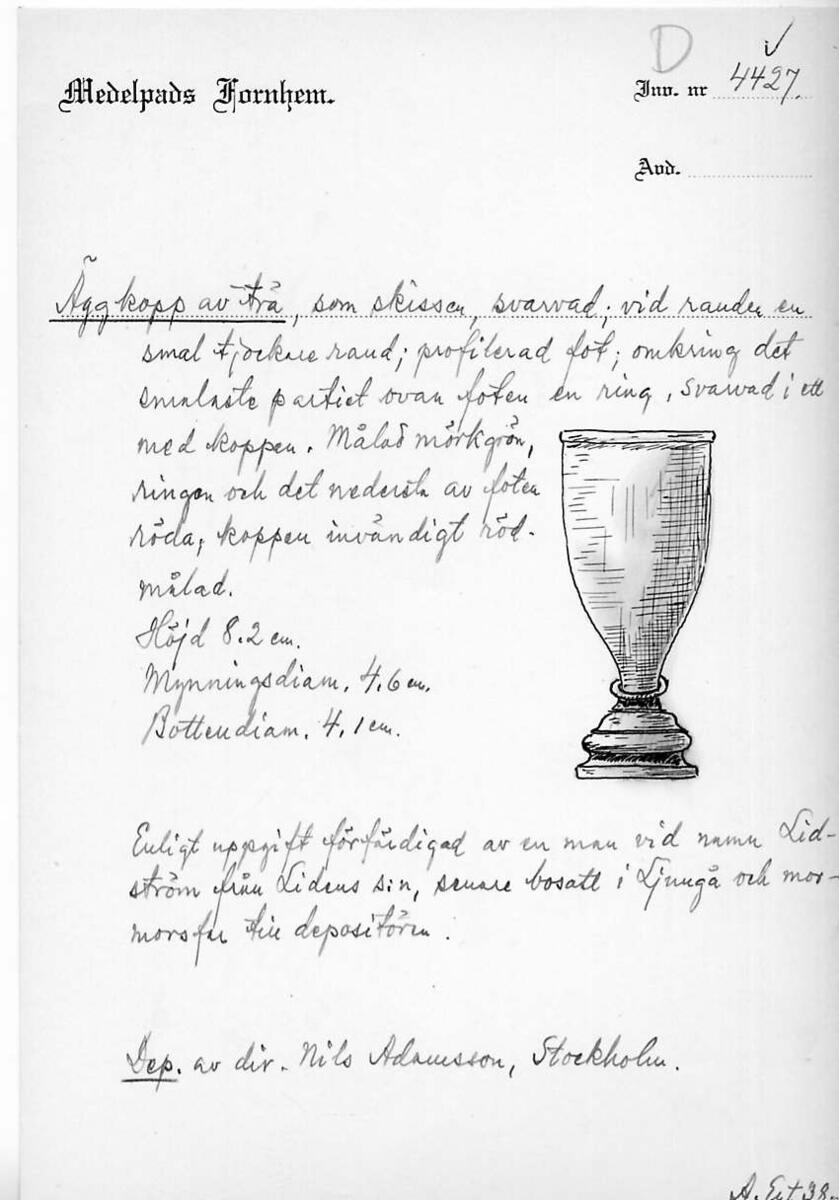 D
Medelpads Fornhem.
Inv. nr 4427.
Avd.
Äggkopp av trä, som skissen, svarvad; vid randen en
smal tjockare rand; profilerad fot; omkring det
smalaste partiet ovan foten en ring, svarvad i ett
med koppen. Målad mörkgrön,
ringen och det nedersta av foten
röda; koppen invändigt röd-
målad.
Höjd 8.2 cm.
Mynningsdiam. 4.6 cm.
Bottendiam. 4.1 cm.
Enligt uppgift förfärdigad av en man vid namn Lid-
ström från Lidens s:n, senare bosatt i Ljungå och mor-
morsfar till depositören.
Dep. av dir. Nils Adamsson, Stockholm.
A.